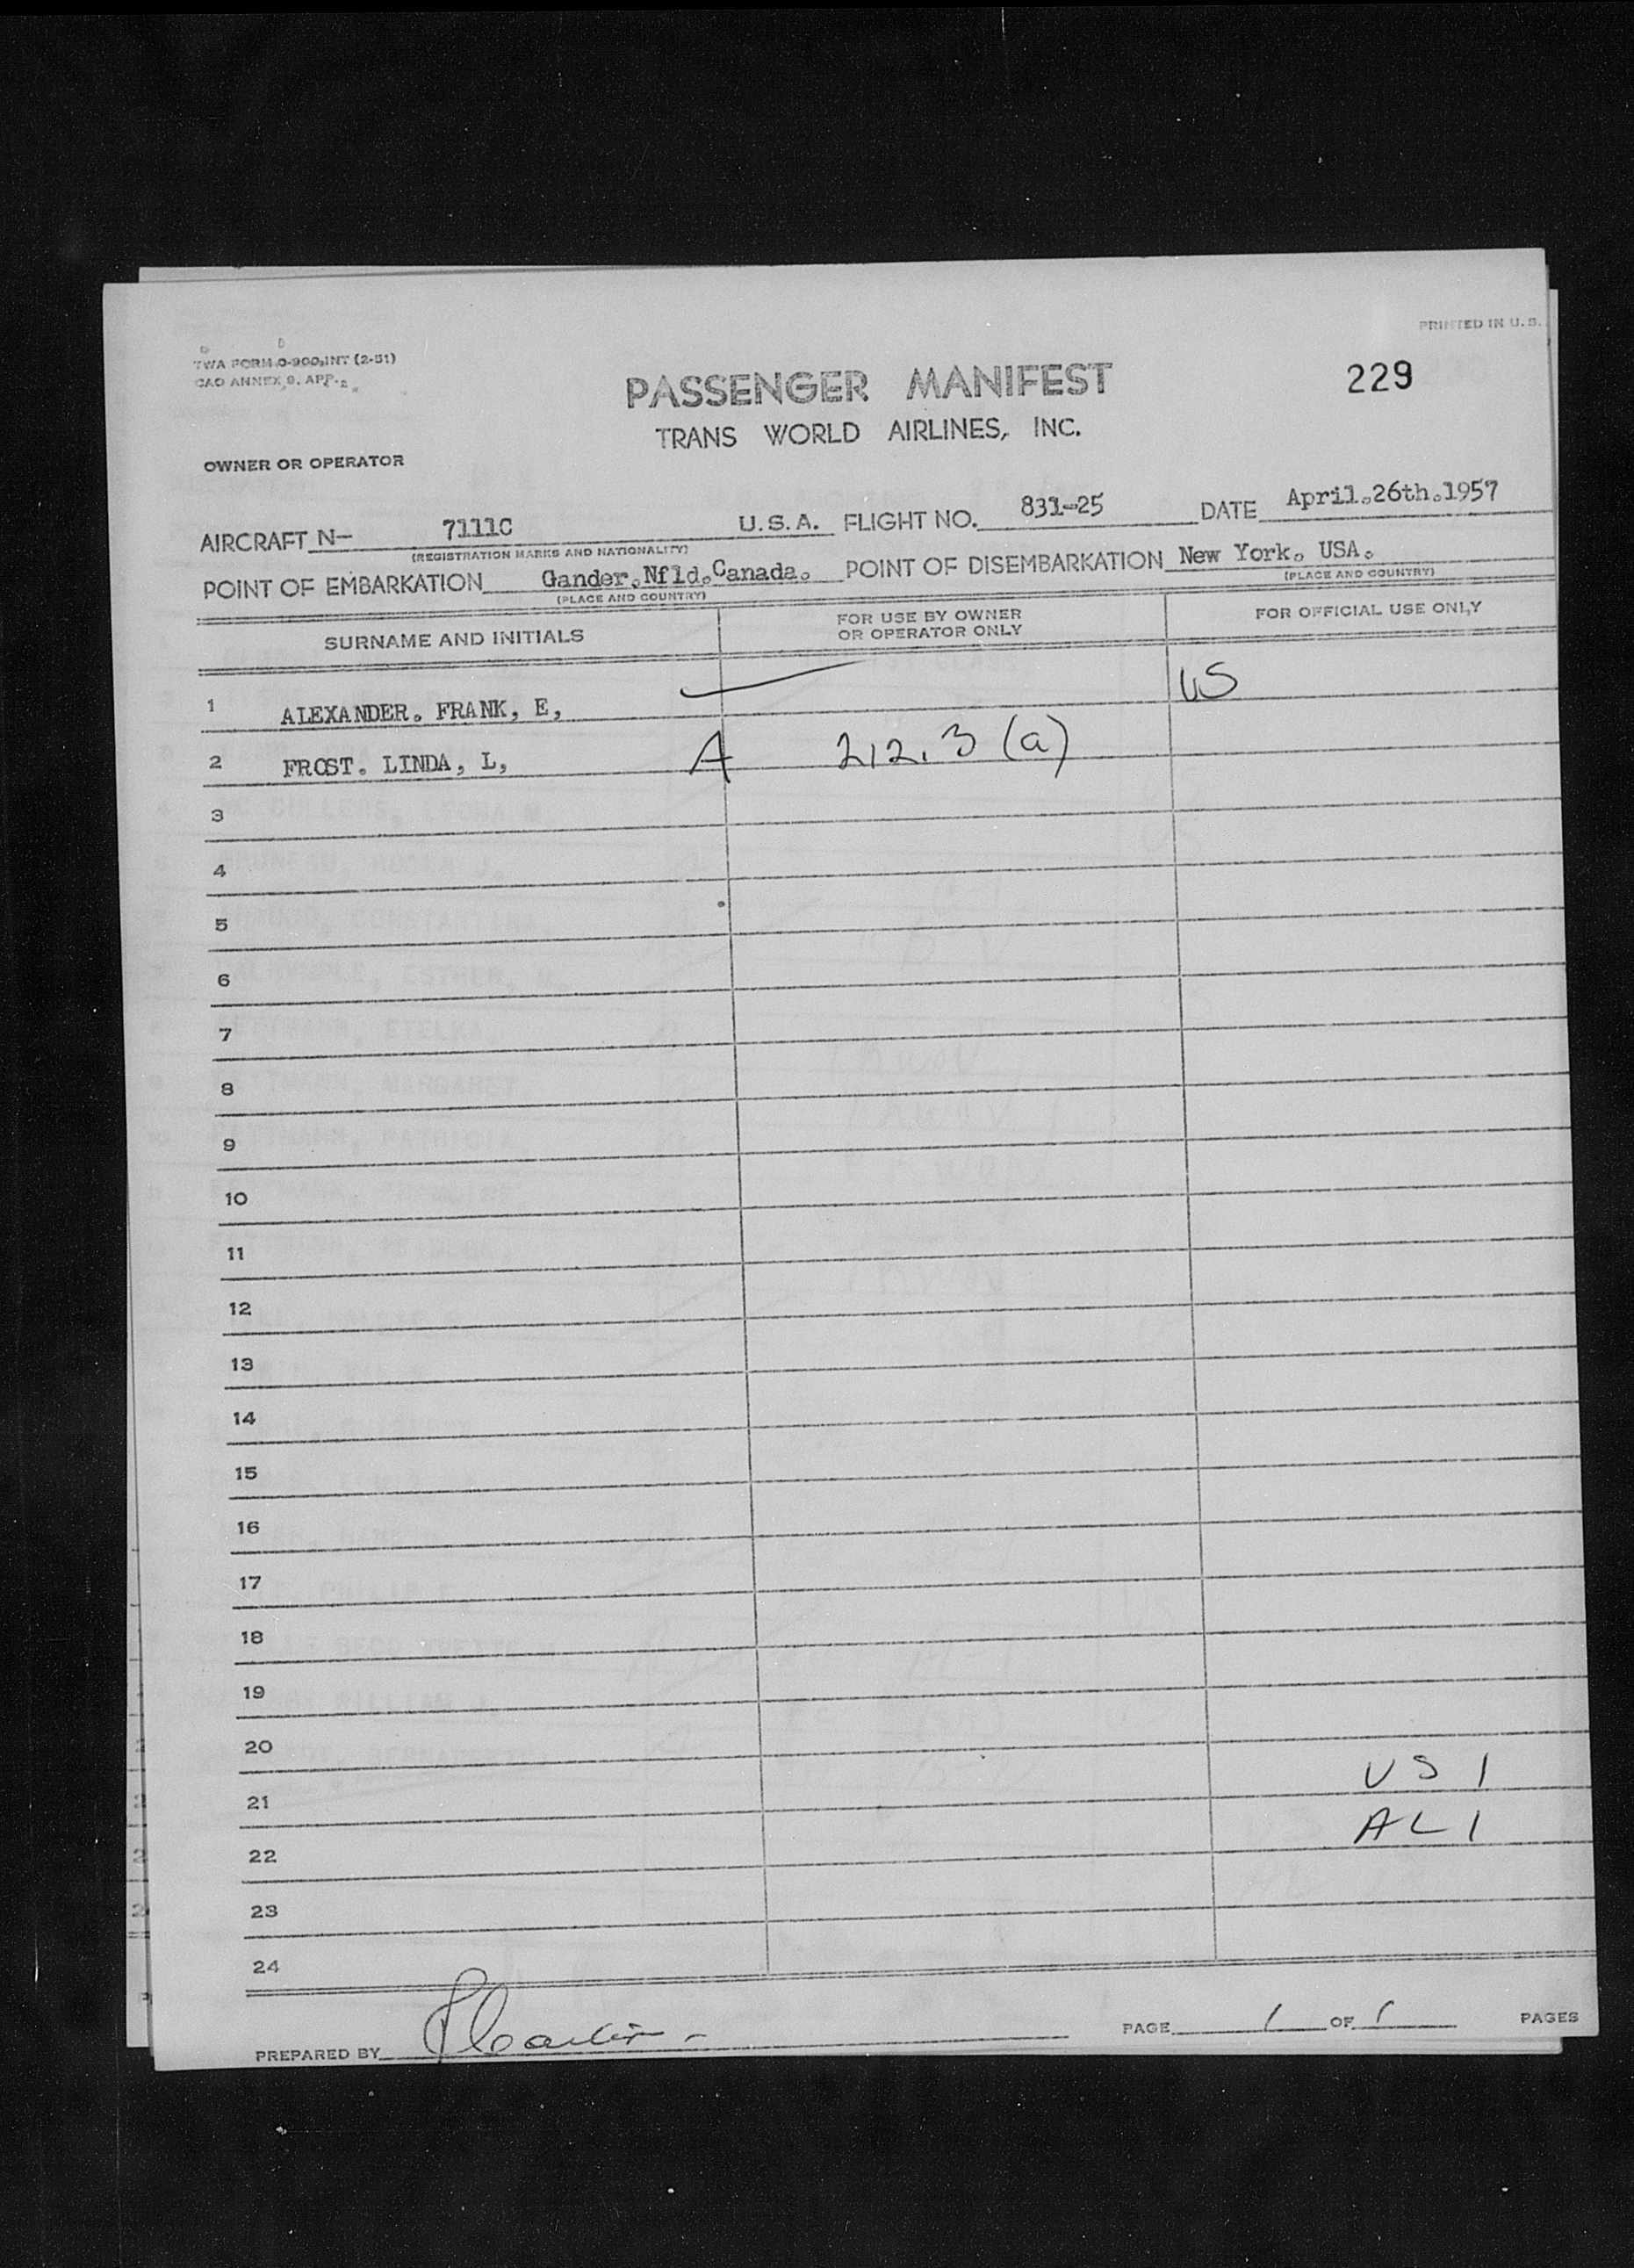 PRINTED IN U. S.
TWA FORM O-900, INT (2-51)
CAO ANNEX 9. APP. 2
PASSENGER MANIFEST
229
TRANS WORLD AIRLINES, INC.
OWNER OR OPERATOR
AIRCRAFT N- 7111C U.S.A. FLIGHT NO. 831-25 DATE April.26th.1957
(REGISTRATION MARKS AND NATIONALITY)
POINT OF EMBARKATION Gander.Nfld.Canada. POINT OF DISEMBARKATION New York. USA.
(PLACE AND COUNTRY) (PLACE AND COUNTRY)
SURNAME AND INITIALS FOR USE BY OWNER OR OPERATOR ONLY FOR OFFICIAL USE ONLY
1 ALEXANDER. FRANK, E, US
2 FROST. LINDA, L, A 212.3 (a)
3
4
5
6
7
8
9
10
11
12
13
14
15
16
17
18
19
20
21 US 1
22 AL 1
23
24
PREPARED BY PAGE 1 OF 1 PAGES